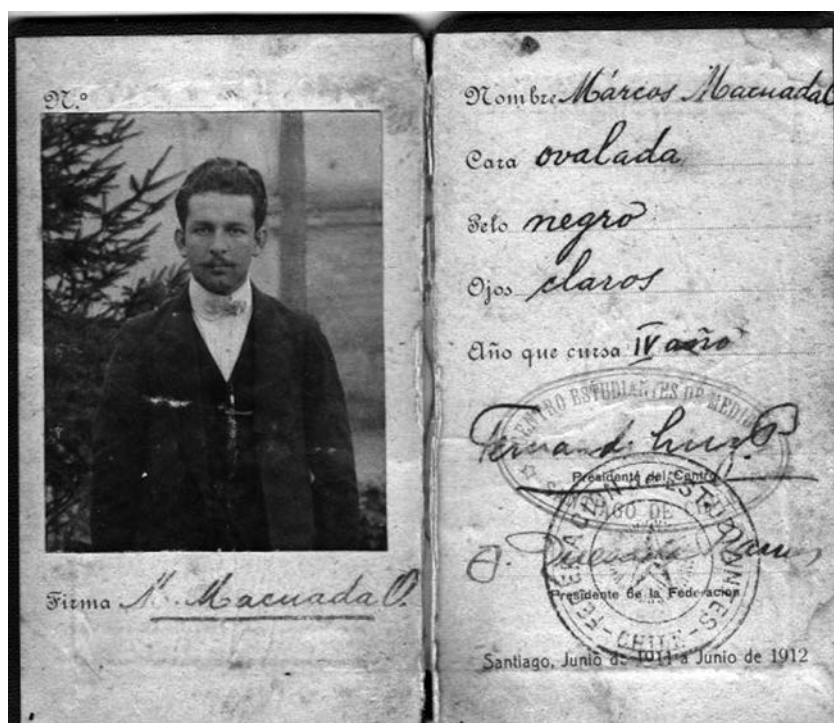 N.º
Firma M. Macuada O.
Nombre Márcos Macuada O
Cara ovalada
Pelo negro
Ojos claros
Año que cursa IV año
CENTRO ESTUDIANTES DE MEDI
Fernando Cruz P
Presidente del Centro
AGO DE
Presidente de la Federacion
FEDERACION DE ESTUDIANTES - CHILE -
Santiago, Junio de 1911 a Junio de 1912